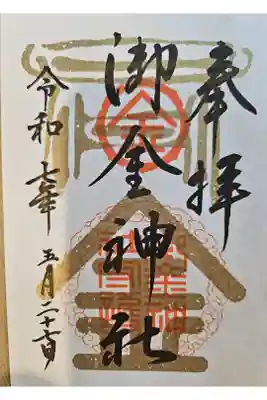 奉拝
御金神社
令和七年五月二十七日